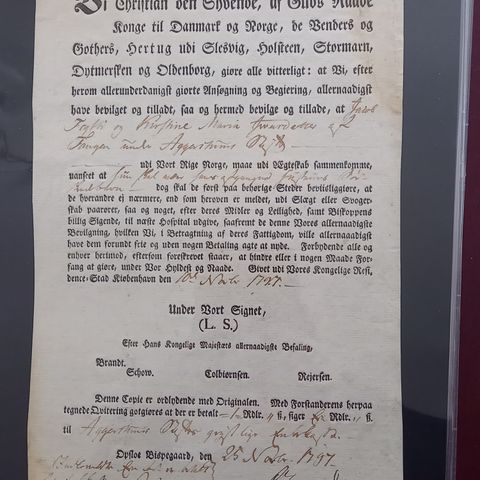 Vi Christian den Syvende, af Guds Naade
Konge til Danmark og Norge, de Venders og
Gothers, Hertug udi Slesvig, Holsteen, Stormarn,
Dytmersken og Oldenborg, giøre alle vitterligt: at Vi, efter
herom allerunderdanigst giorte Ansøgning og Begiering, allernaadigst
have bevilget og tilladt, saa og hermed bevilge og tillade, at Jacob
og Kirstine Maria af
under Aggershuus
udi Vort Rige Norge, maae udi Ægteskab sammenkomme,
uanset at
dog skal de først paa behørige Steder beviisliggiøre, at
de hverandre ei nærmere, end som herover er meldt, udi Slægt eller Svoger-
skab paarører, saa og noget, efter deres Midler og Leilighed, samt Biskoppens
billig Sigende, til næste Hospital udgive, saafremt de denne Vores allernaadigst
Bevilgning, hvilken Vi, i Betragtning af deres Fattigdom, ville allernaadigst
have dem forundt frit og uden nogen Betaling agte at nyde. Forbydende alle og
enhver herimod, efter som forskrevet staaer, at hindre eller i nogen Maade For-
fang at giøre, under Vor Hyldest og Naade. Givet udi Vores Kongelige Resi-
dence-Stad Kiøbenhavn den 10de 1797.
Under Vort Signet,
(L. S.)
Efter Hans Kongelige Majestæts allernaadigste Befaling,
Brandt.
Schow. Colbiørnsen. Reiersen.
Denne Copie er ordlydende med Originalen. Med Forstanderens herpaa
tegnede Qvitering gotgiøres at der er betalt 1 Rdlr. ß, siger Een Rdlr. ß.
til Aggershuus Stifts geistlige Enkekasse.
Opsloe Bispegaard, den 25 1797.